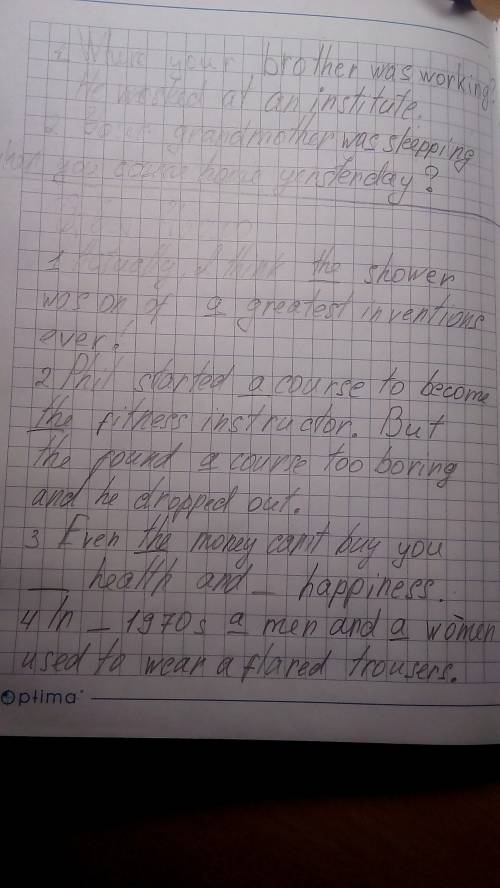 your brother was working?
He worked at an institute.
2. grandmother was sleepping
you came home yensterday?
1. Actually, I think the shower
was on of a greatest inventions
ever!
2 Phil started a course to become
the fitness instructor. But
the found a course too boring
and he dropped out.
3 Even the money can't buy you
__ health and _ happiness.
4 In _ 1970s a men and a women
used to wear a flared trousers.
Optima